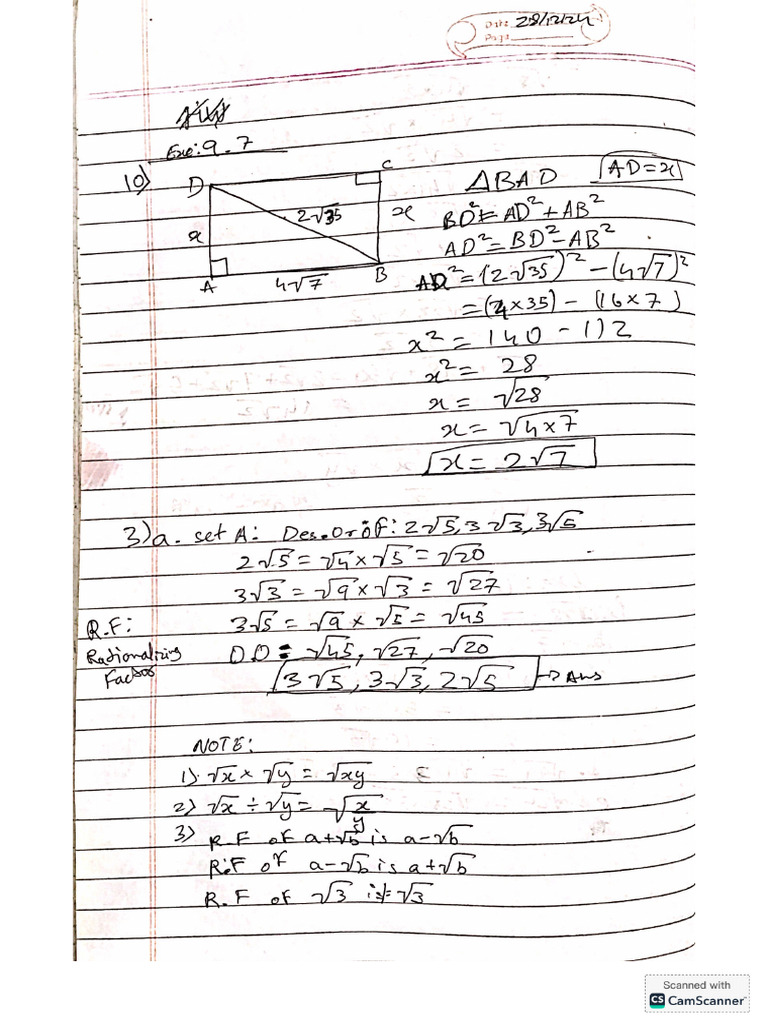 Date: 28/12/24
Page:
Exe: 9.7
10)
D
C
2√35
x
x
A
4√7
B
△BAD
AD=x
BD²=AD²+AB²
AD²=BD²-AB²
AD²=(2√35)²-(4√7)²
=(4×35)-(16×7)
x²=140-112
x²=28
x=√28
x=√4×7
x=2√7
3)a. set A: Des.Or of: 2√5,3√3,3√5
2√5=√4×√5=√20
3√3=√9×√3=√27
3√5=√9×√5=√45
R.F:
Rationalizing
Factor
D.O=√45,√27,√20
3√5,3√3,2√5 → Ans
NOTE:
1) √x×√y=√xy
2) √x÷√y=√x/y
3) R.F of a+√b is a-√b
R.F of a-√b is a+√b
R.F of √3 is √3
Scanned with
CS CamScanner